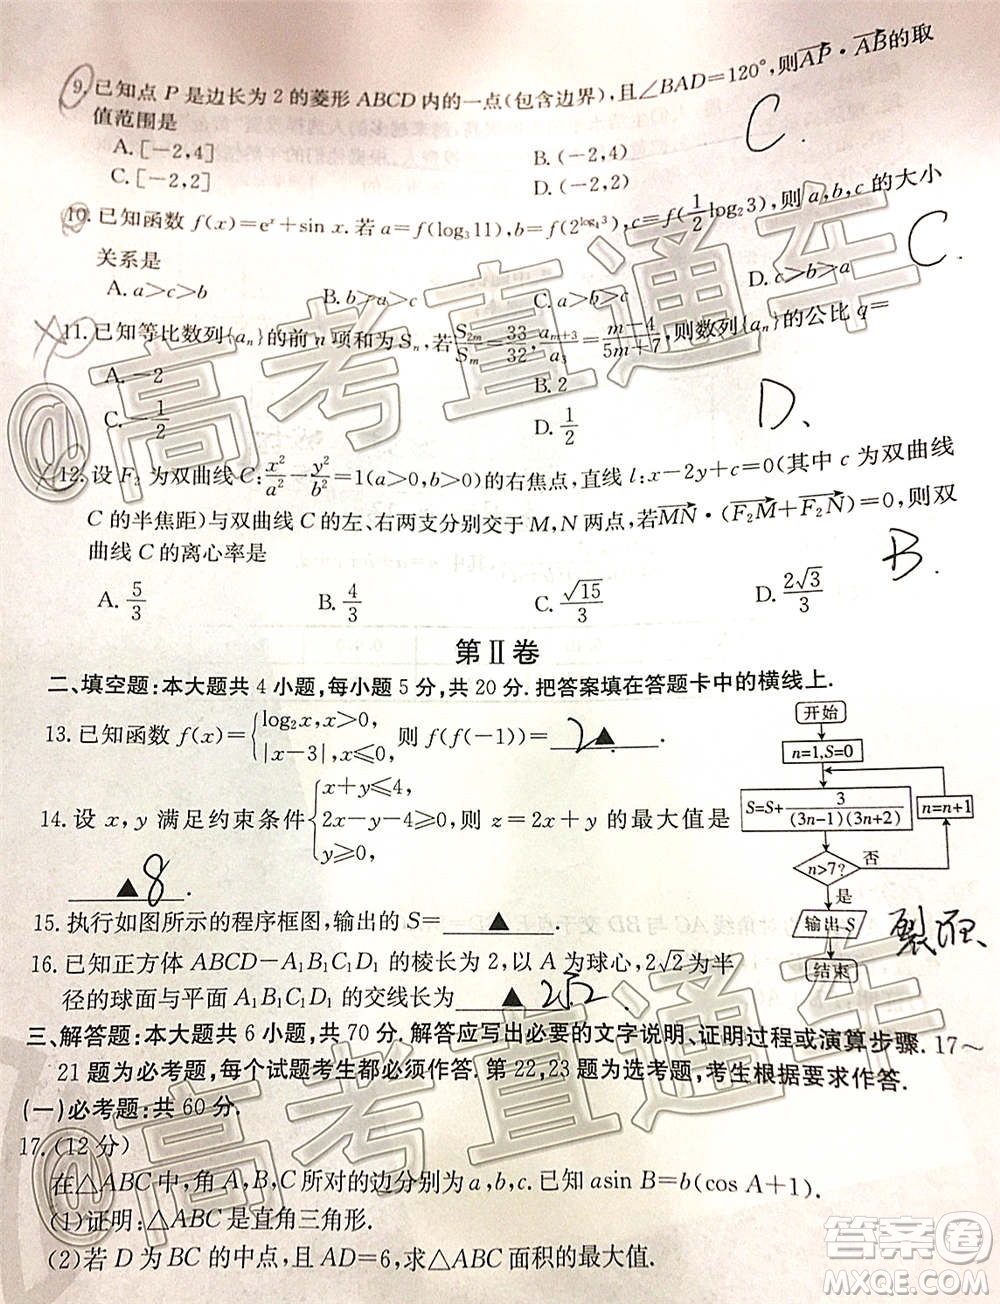 9. 已知点 P 是边长为 2 的菱形 ABCD 内的一点(包含边界),且∠BAD=120°,则AP·AB的取
值范围是
C.
A.[-2,4] B.(-2,4)
C.[-2,2] D.(-2,2)
10. 已知函数 f(x)=eˣ+sin x.若 a=f(log₃11),b=f(2^(log₄3)),c=f(1/2 log₂3),则 a,b,c 的大小
关系是
C.
A.a>c>b B.b>a>c C.a>b>c D.c>b>a
11. 已知等比数列{aₙ}的前 n 项和为 Sₙ,若S₂ₘ/Sₘ=33/32,aₘ₊₃/a₃=(m-4)/(5m+7),则数列{aₙ}的公比 q=
A.-2 B.2
C.-1/2 D.1/2
D.
12. 设 F₂ 为双曲线 C:x²/a²-y²/b²=1(a>0,b>0)的右焦点,直线 l:x-2y+c=0(其中 c 为双曲线
C 的半焦距)与双曲线 C 的左、右两支分别交于 M,N 两点,若MN·(F₂M+F₂N)=0,则双
曲线 C 的离心率是
B.
A.5/3 B.4/3 C.√15/3 D.2√3/3
第Ⅱ卷
二、填空题:本大题共 4 小题,每小题 5 分,共 20 分.把答案填在答题卡中的横线上.
13. 已知函数 f(x)={log₂x,x>0, |x-3|,x≤0, 则 f(f(-1))= 2 ▲ .
14. 设 x,y 满足约束条件{x+y≤4, 2x-y-4≥0, y≥0, 则 z=2x+y 的最大值是
▲ 8 .
15. 执行如图所示的程序框图,输出的 S= ▲ .
16. 已知正方体 ABCD-A₁B₁C₁D₁ 的棱长为 2,以 A 为球心,2√2为半
径的球面与平面 A₁B₁C₁D₁ 的交线长为 ▲ 2√2 .
开始
n=1,S=0
S=S+3/((3n-1)(3n+2))
n=n+1
n>7?
否
是
输出 S
结束
裂项
三、解答题:本大题共 6 小题,共 70 分.解答应写出必要的文字说明、证明过程或演算步骤.17~
21 题为必考题,每个试题考生都必须作答.第 22,23 题为选考题,考生根据要求作答.
(一)必考题:共 60 分.
17.(12 分)
在△ABC 中,角 A,B,C 所对的边分别为 a,b,c.已知 asin B=b(cos A+1).
(1)证明:△ABC 是直角三角形.
(2)若 D 为 BC 的中点,且 AD=6,求△ABC 面积的最大值.
@高考直通车
@高考直通车
答案卷
MXQE.COM